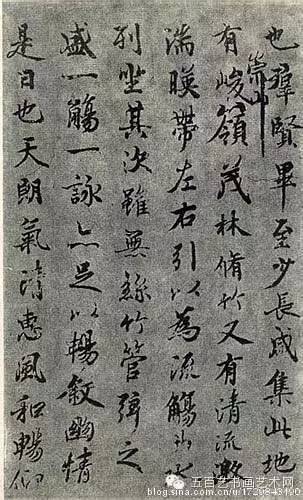 也群賢畢至少長咸集此地
有崇山峻領茂林脩竹又有清流激
湍暎帶左右引以為流觴曲水
列坐其次雖無絲竹管弦之
盛一觴一詠亦足以暢敘幽情
是日也天朗氣清惠風和暢仰
五百艺书画艺术网
blog.sina.com.cn/u/1720843100